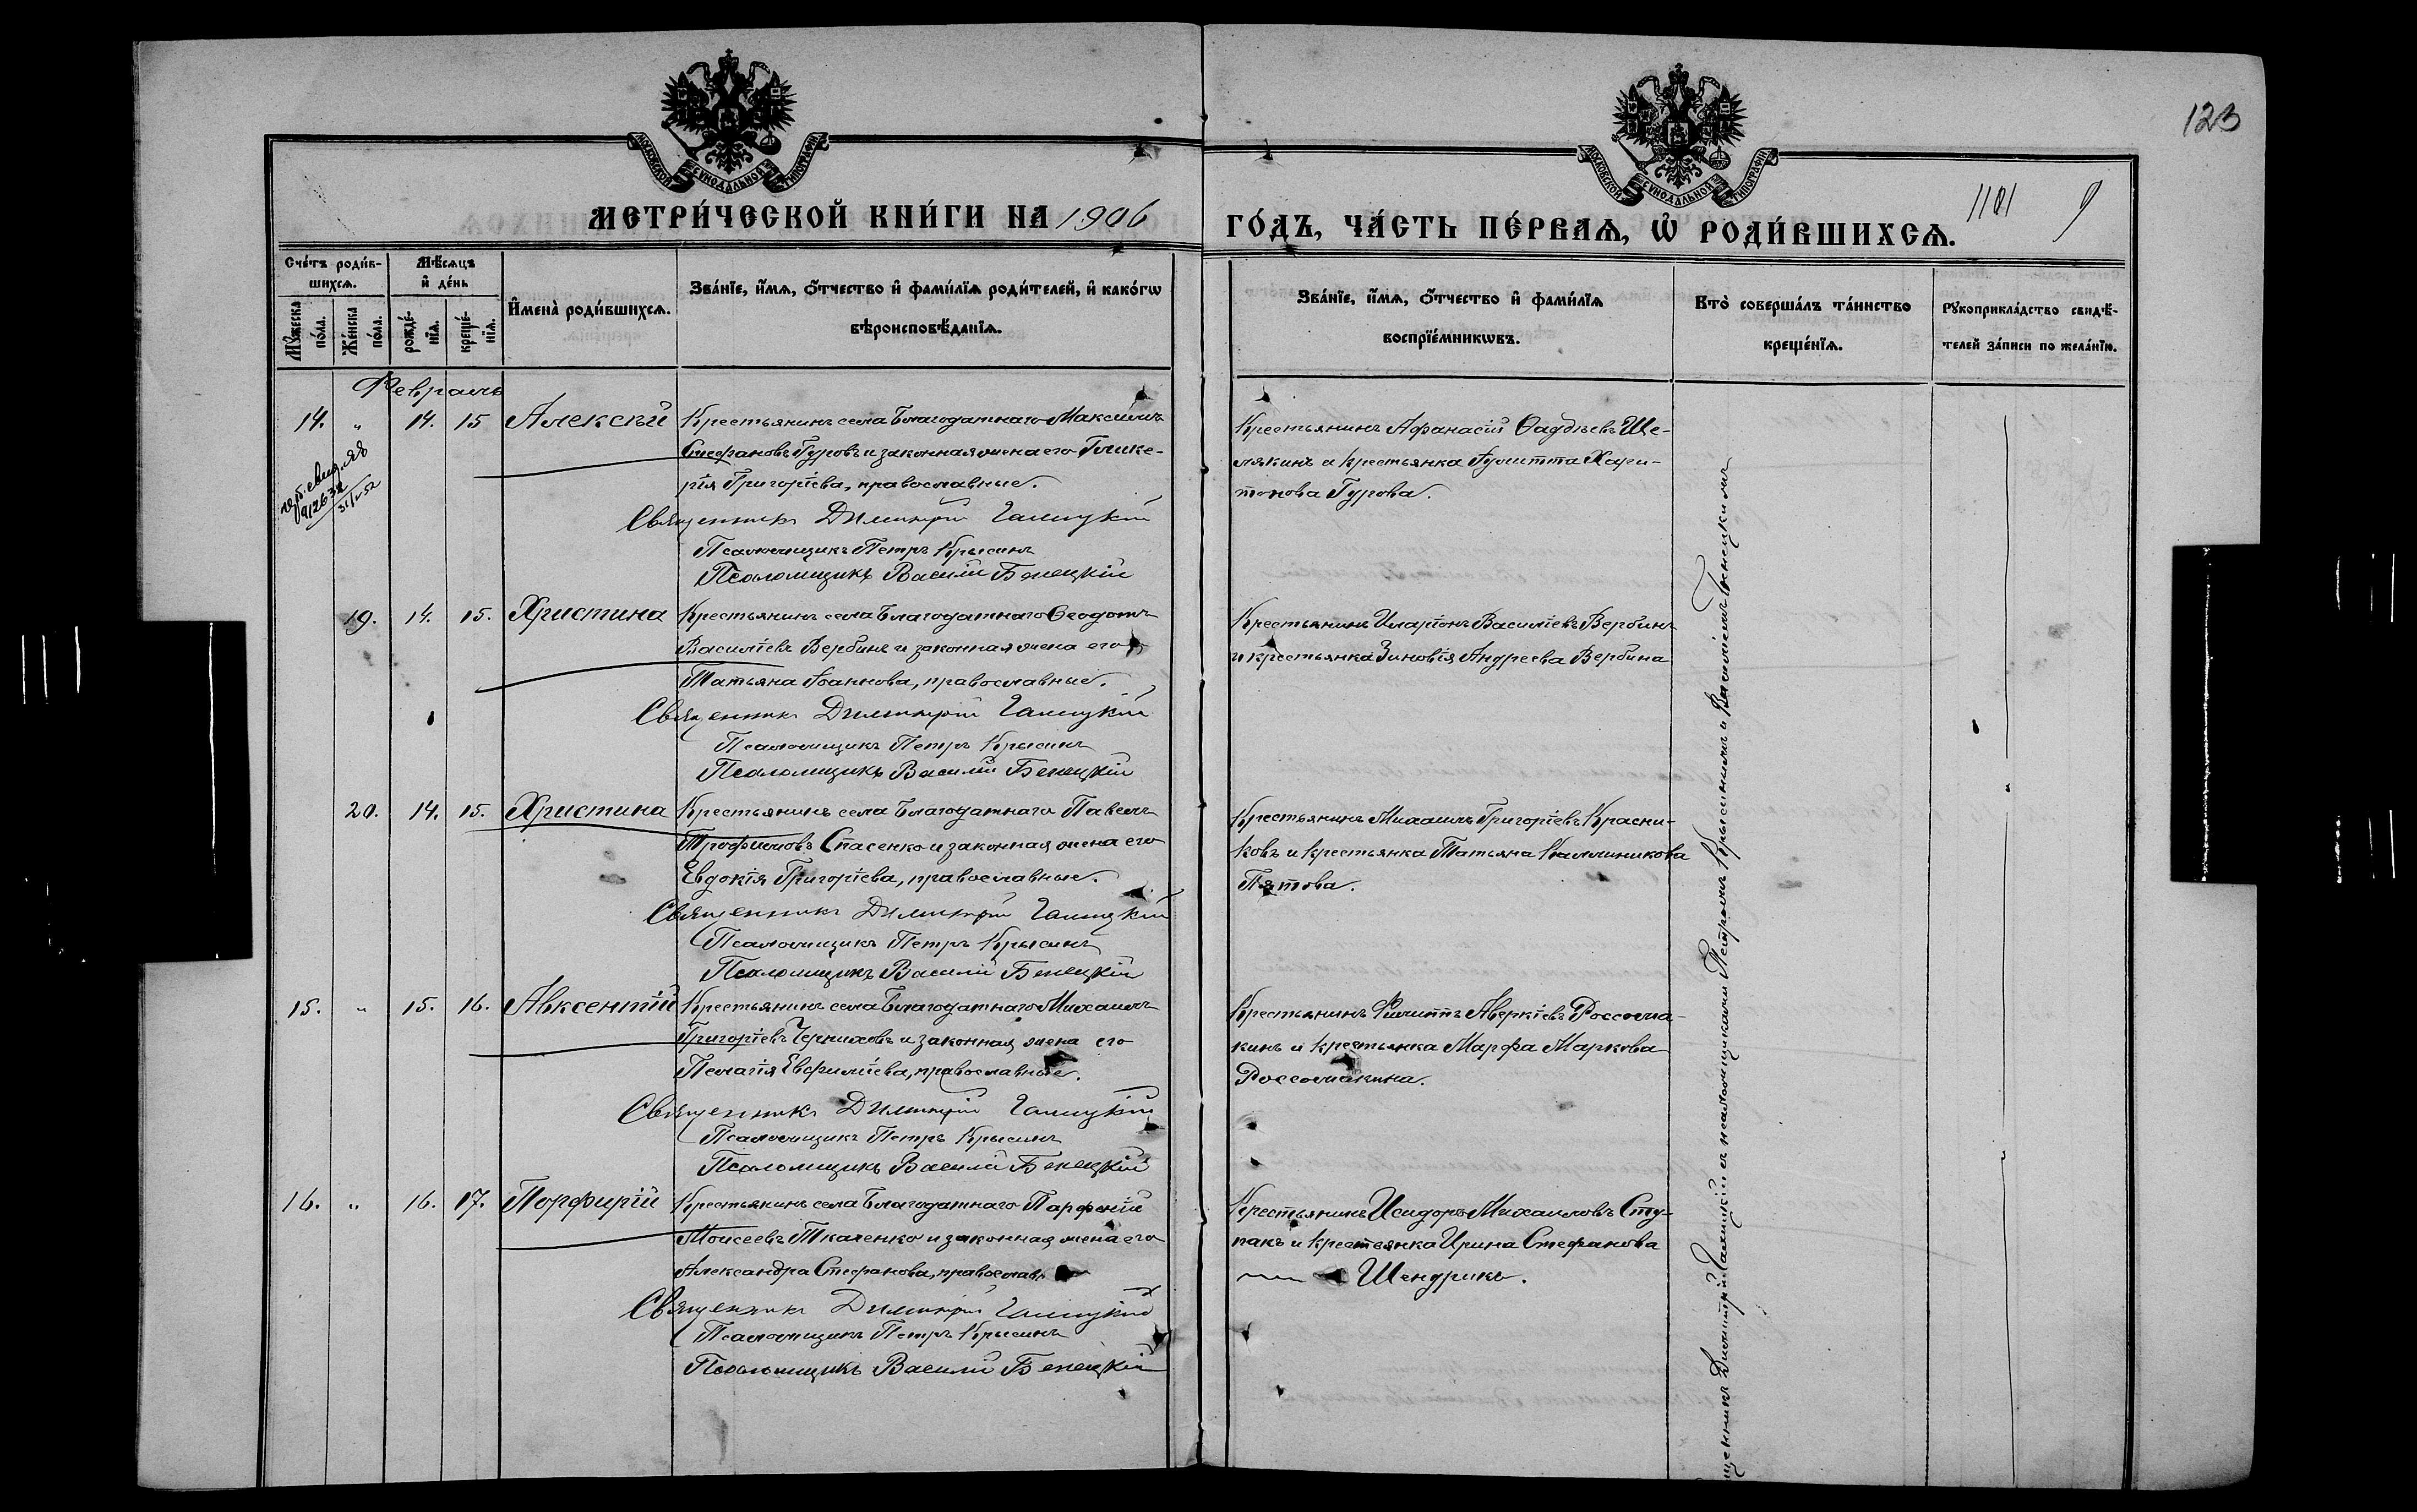 123
МОСКОВСКОЙ СѴНОДАЛЬНОЙ ТИПОГРАФІИ
МОСКОВСКОЙ СѴНОДАЛЬНОЙ ТИПОГРАФІИ
МЕТРИ́ЧЕСКОЙ КНИ́ГИ НА 1906
ГО́ДЪ, ЧА́СТЬ ПЕ́РВАѦ, Ѡ҆ РОДИ́ВШИХСѦ.
1101 9
Сче́тъ роди́в-
шихсѧ.
Мꙋ́жеска по́ла.
Же́нска по́ла.
Мѣ́сѧцъ
и҆ де́нь
рожде́-
нїѧ.
креще́-
нїѧ.
И҆мена̀ роди́вшихсѧ.
Зва́нїе, и҆́мѧ, ѻ҆́тчество и҆ фами́лїѧ роди́телей, и҆ како́гѡ
вѣроисповѣ́данїѧ.
Зва́нїе, и҆́мѧ, ѻ҆́тчество и҆ фами́лїѧ
воспрїе́мникѡвъ.
Кто̀ соверша́лъ та́инство
креще́нїѧ.
Рꙋкоприкла́дство свидѣ́-
телей за́писи по жела́нїю.
Февраль
14. " 14. 15 Алексѣй
Крестьянинъ села Благодатнаго Максимъ
Стефановъ Гуровъ и законная жена его Глике-
рія Григоріева, православные.
Священникъ Димитрій Галицкій
Псаломщикъ Петръ Крысинъ
Псаломщикъ Василій Бенецкій
Крестьянинъ Афанасій Ѳаддѣевъ Ще-
лякинъ и крестьянка Іулитта Хари-
тонова Гурова.
19. 14. 15. Христина
Крестьянинъ села Благодатнаго Ѳеодотъ
Василіевъ Вербинъ и законная жена его
Татьяна Іоаннова, православные.
Священникъ Димитрій Галицкій
Псаломщикъ Петръ Крысинъ
Псаломщикъ Василій Бенецкій
Крестьянинъ Иларіонъ Василіевъ Вербинъ
и крестьянка Зиновія Андреева Вербина
20. 14. 15. Христина
Крестьянинъ села Благодатнаго Павелъ
Трофимовъ Спасенко и законная жена его
Евдокія Григоріева, православные.
Священникъ Димитрій Галицкій
Псаломщикъ Петръ Крысинъ
Псаломщикъ Василій Бенецкій
Крестьянинъ Михаилъ Григоріевъ Красни-
ковъ и крестьянка Татьяна Каллиникова
Пятова.
15. " 15. 16. Авксентій
Крестьянинъ села Благодатнаго Михаилъ
Григоріевъ Черниховъ и законная жена его
Пелагія Евфиміева, православные.
Священникъ Димитрій Галицкій
Псаломщикъ Петръ Крысинъ
Псаломщикъ Василій Бенецкій
Крестьянинъ Филиппъ Аверкіевъ Россома-
кинъ и крестьянка Марфа Маркова
Россомакина.
16. " 16. 17. Порфирій
Крестьянинъ села Благодатнаго Парфеній
Моисеевъ Ткаченко и законная жена его
Александра Стефанова, православн
Священникъ Димитрій Галицкій
Псаломщикъ Петръ Крысинъ
Псаломщикъ Василій Бенецкій
Крестьянинъ Исидоръ Михаиловъ Сту-
пакъ и крестьянка Ирина Стефанова
Шендрикъ.
щенникъ Димитрій Галицкій съ псаломщиками Петромъ Крысинымъ и Василіемъ Бенецкимъ